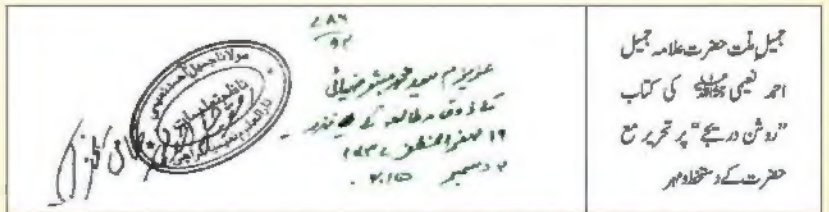 جمیل ملت حضرت علامہ جمیل
احمد نعیمی ﷫ کی کتاب
"روشن دریچے" پر تحریر مع
حضرت کے دستخط و مہر
۷۸۶
۹۲
عزیزم سعید محمد مبشر ضیائی
کے ذوق مطالعہ کے نذر
۱۹ صفر المظفر ۱۴۳۷
۲ دسمبر ۲۰۱۵
مولانا جمیل احمد نعیمی
ناظم تعلیمات
دارالعلوم نعیمیہ کراچی